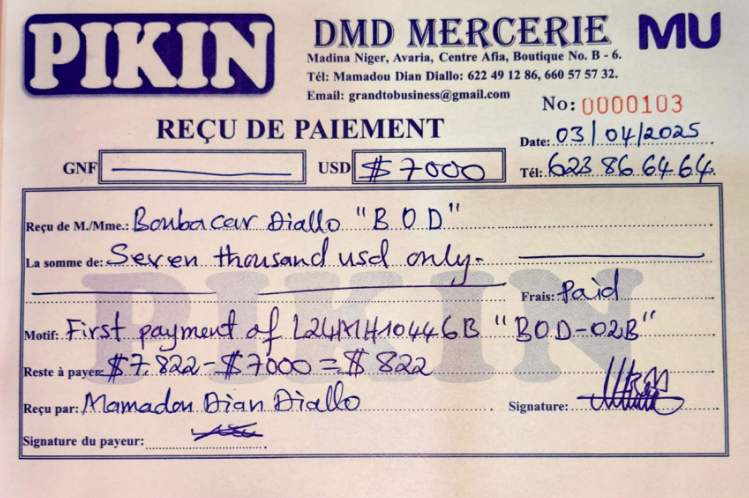 PIKIN
DMD MERCERIE
MU
Madina Niger, Avaria, Centre Afia, Boutique No. B - 6.
Tél: Mamadou Dian Diallo: 622 49 12 86, 660 57 57 32.
Email: grandtobusiness@gmail.com
No: 0000103
REÇU DE PAIEMENT
Date: 03/04/2025
GNF
USD $ 7000
Tél: 623 86 64 64.
Reçu de M./Mme.: Boubacar Diallo "B O D"
La somme de: Seven thousand usd only.
Frais: Paid
PIKIN
Motif: First payment of "BOD-02B"
Reste à payer: $7.822 - $7000 = $822
Reçu par: Mamadou Dian Diallo
Signature:
Signature du payeur: